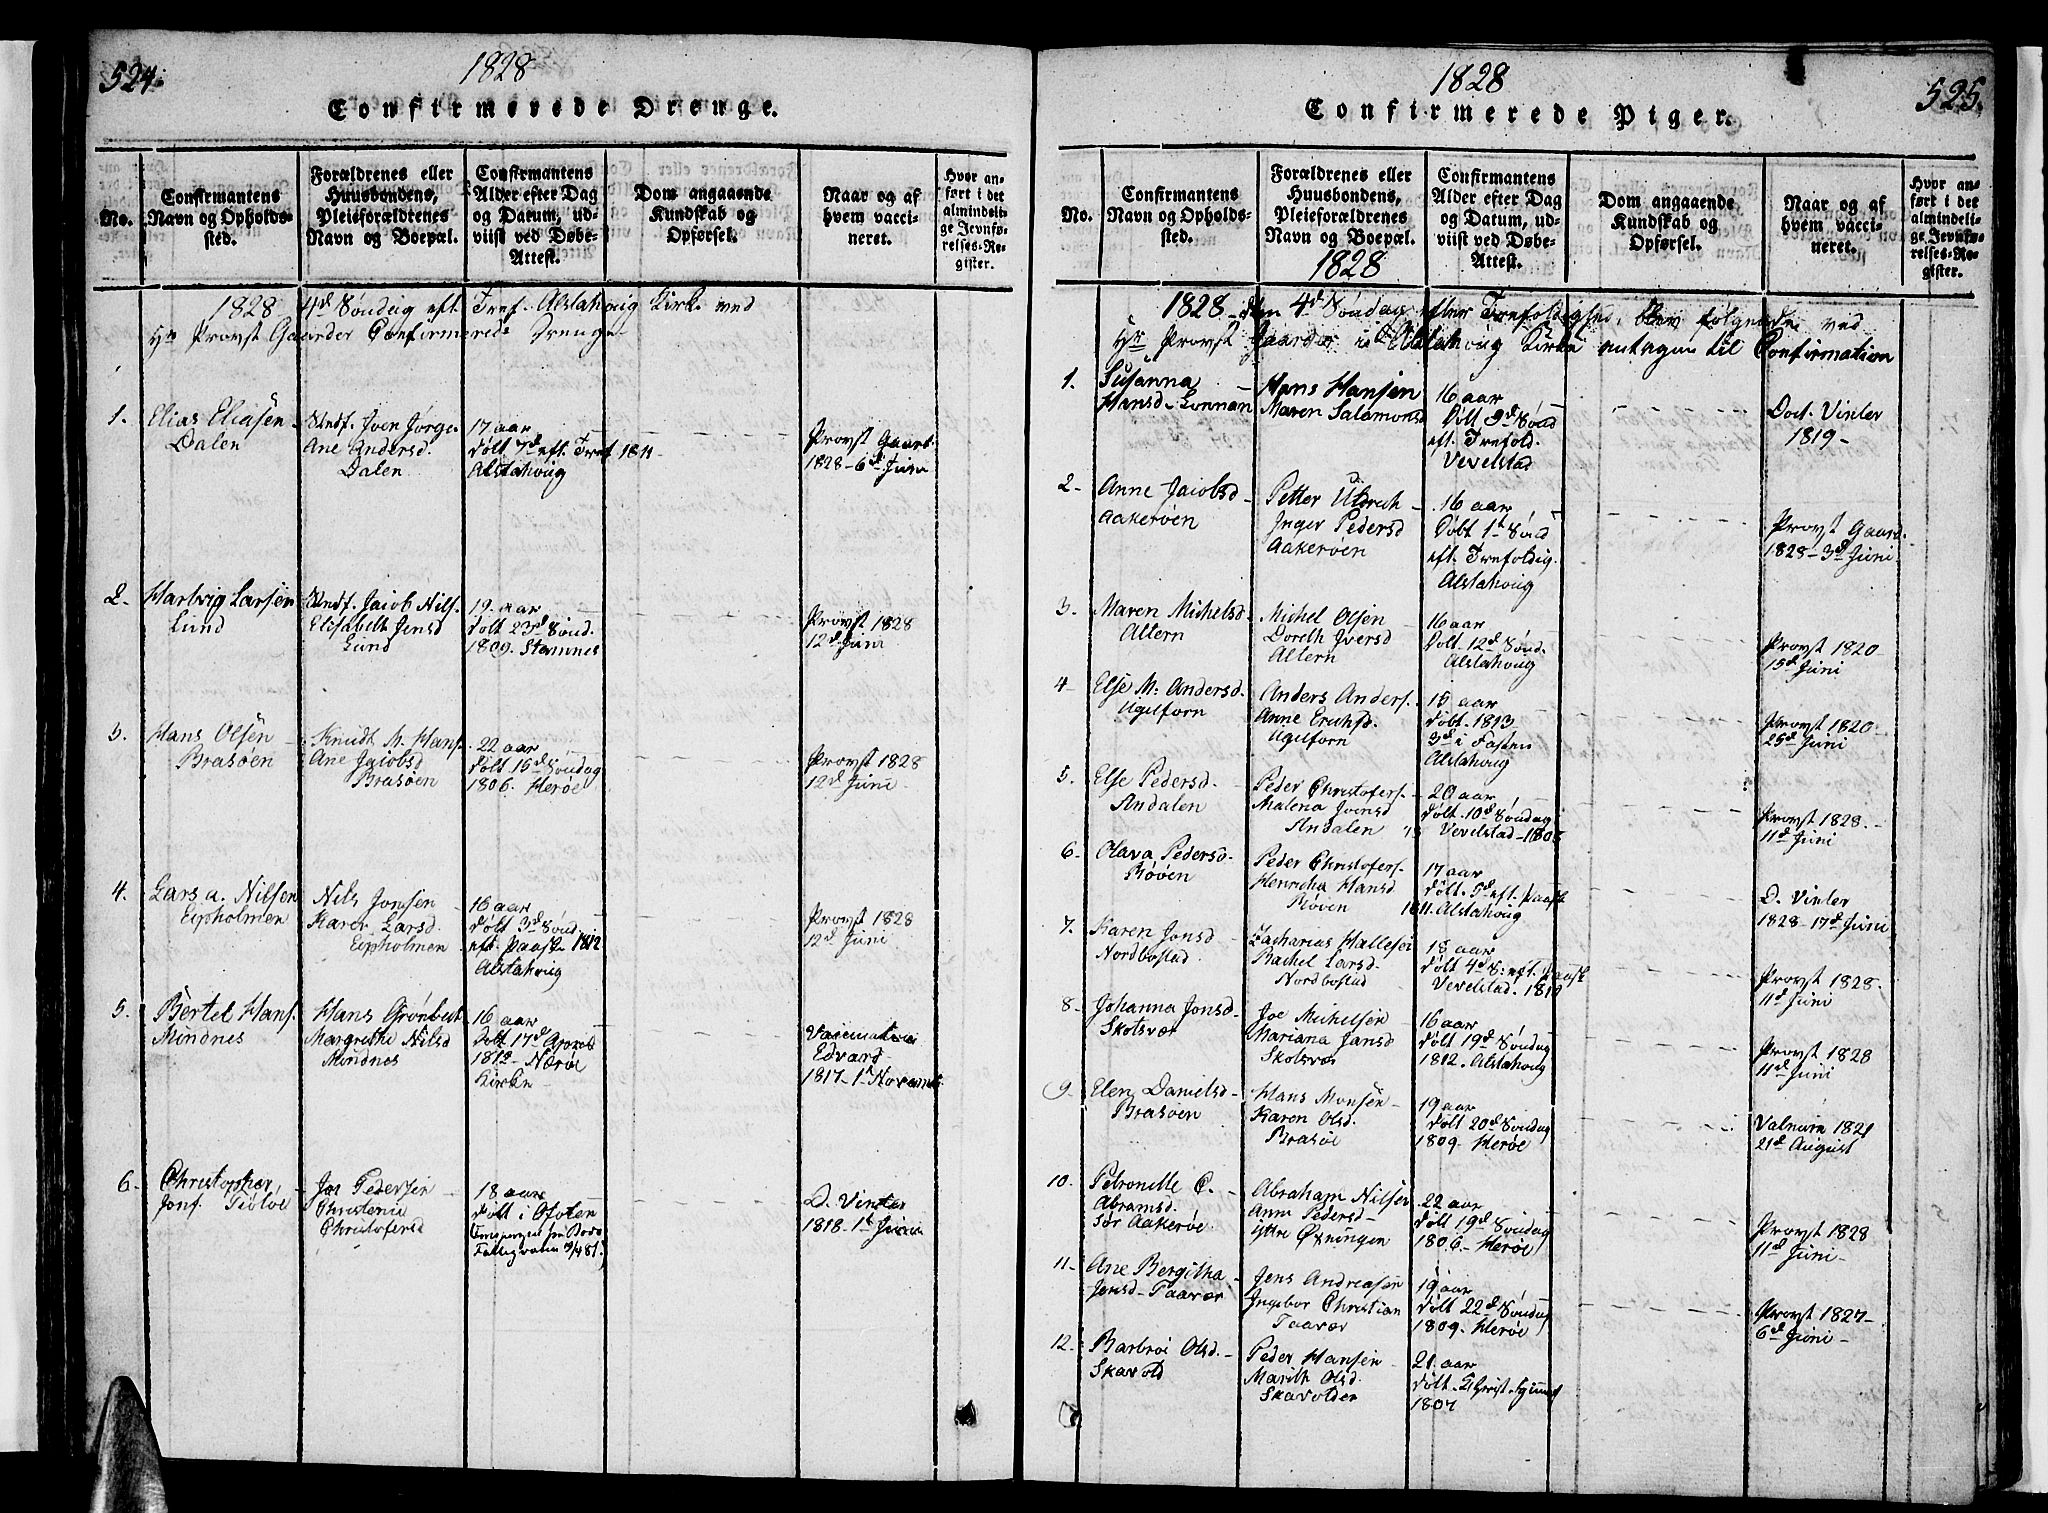 524.
1828
Confirmerede Drenge.
No.
Confirmantens
Navn og Opholds-
sted.
Forældrenes eller
Huusbondens,
Pleieforældrenes
Navn og Boepæl.
Confirmantens
Alder efter Dag
og Datum, ud-
viist ved Døbe-
Attest.
Dom angaaende
Kundskab og
Opførsel.
Naar og af
hvem vacci-
neret.
Hvor an-
ført i det
almindeli-
ge Jevnfø-
relses-Re-
gister.
1828 4d Søndag eft. Tref. Alstahoug Kirke ved
Hr Provst Gaarder Confirmerede Drenge
1.
Elias Eliasen
Dalen
Undf. Joen Jørge.
Ane Andersd.
Dalen
17 aar
døbt 7d eft. Tref. 1811
Alstahoug
Provst Gaard.
1828 - 6d Juni
2.
Hartvig Larsen
Lund
Undf. Jacob Nils.
Elisabeth Jensd
Lund
19 aar
døbt 23d Sønd.
1809. Stamnes
Provst 1828
12d Juni
3.
Hans Olsen
Brasøen
Knudt M. Hans.
Ane Jacobsd
Brasøen
22 aar
døbt 15d Søndag
1806. Herøe
Provst 1828
12d Juni
4.
Lars A. Nilsen
Eipholmen
Nils Jonsen
Karen Larsd.
Eipholmen
16 aar
døbt 3d Sønd.
eft. Paaske 1812
Alstahoug
Provst 1828
12d Juni
5.
Bertel Hans.
Mindnes
Hans Grønbech
Margrethe Nilsd
Mindnes
16 aar
Døbt 17d April
1812 - Nærøe
Kirke
Edvard
1817 - 1t Novemb.
6.
Christopher
Jons. Tiøtøe
Joe Pedersen
Christenie
Christofersd
18 aar
døbt i Ofoten
D. Vinter
1818. 1t Juni
1828
Confirmerede Piger.
525.
No.
Confirmantens
Navn og Opholds-
sted.
Forældrenes eller
Huusbondens,
Pleieforældrenes
Navn og Boepæl.
1828
Confirmantens
Alder efter Dag
og Datum, ud-
viist ved Døbe-
Attest.
Dom angaaende
Kundskab og
Opførsel.
Naar og af
hvem vacci-
neret.
Hvor an-
ført i det
almindeli-
ge Jevnfø-
relses-Re-
gister.
1828 - den 4d Søndag efter Trefoldighed, blev følgende ved
Hr Provst Gaarder i Alstahoug Kirke antagen til Confirmation
1.
Susanna
Hansd.
Hans Hansen
Maren Salamonsd
16 aar
Døbt 9d Sønd
eft. Trefold.
Vevelstad
Doct. Vinter
1819 -
2 -
Anne Jacobsd
Aakerøen
Petter Uldrich
Inger Pedersd
Aakerøen
16 aar
Døbt 1t Sønd
eft. Trefoldig.
Alstahoug
Provst Gaard.
1828 - 3d Juni
3.
Maren Michelsd
Altern
Michel Olsen
Doreth Iversd
Altern
16 aar
Døbt 12d Sønd.
Alstahoug
Provst 1820
15d Juni
4 -
Else M. Andersd.
Ugelforn
Anders Anders.
Anne Erichsd.
Ugelforn
15 aar
døbt 1813
3d i Fasten
Alstahoug
Provst 1820
25d Juni
5.
Else Pedersd.
Andalen
Peder Christofers.
Malena Joensd
Andalen
20 aar
døbt 10d Søndag
Vevelstad - 1808
Provst 1828.
11d Juni
6.
Olava Pedersd.
Røven
Peder Christofers.
Henricha Hansd
Røven
17 aar
døbt 5d eft. Paask
1811. Alstahoug
D. Vinter
1828 - 17d Juni
7.
Karen Jonsd
Nordbostad
Zacharias Hallesen
Rachel Larsd.
Nordbostad
18 aar
døbt 4d S. eft. Paask
Vevelstad. 1810
Provst 1828.
11d Juni
8 -
Johanna Jonsd
Skotsvær
Joe Michelsen
Mariana Jansd
Skotsvær
16 aar
døbt 19d Søndag
1812. Alstahoug
Provst 1828
11d Juni
9.
Elen Danielsd
Brasøen
Hans Monsen
Karen Olsd.
Brasøe
19 aar
døbt 20d Søndag
1809. Herøe
Valnum 1821
21d August
10.
Petronelle C.
Abramsd.
Sør Aakerøe
Abraham Nilsen
Ann Pedersd
Yttre Øxningen
22 aar
døbt 19d Søndag
1806 - Herøe
Provst 1828
11d Juni -
11 -
Ane Bergitha
Jensd - Taavær
Jens Andreasen
Ingebor Christian
Taavær
19 aar
døbt 22d Søndag
1809. Herøe
Provst 1827 -
6d Juni -
12.
Barbroe Olsd.
Skavold
Peder Hansen
Marith Olsd.
Skavolden
21 aar
1807